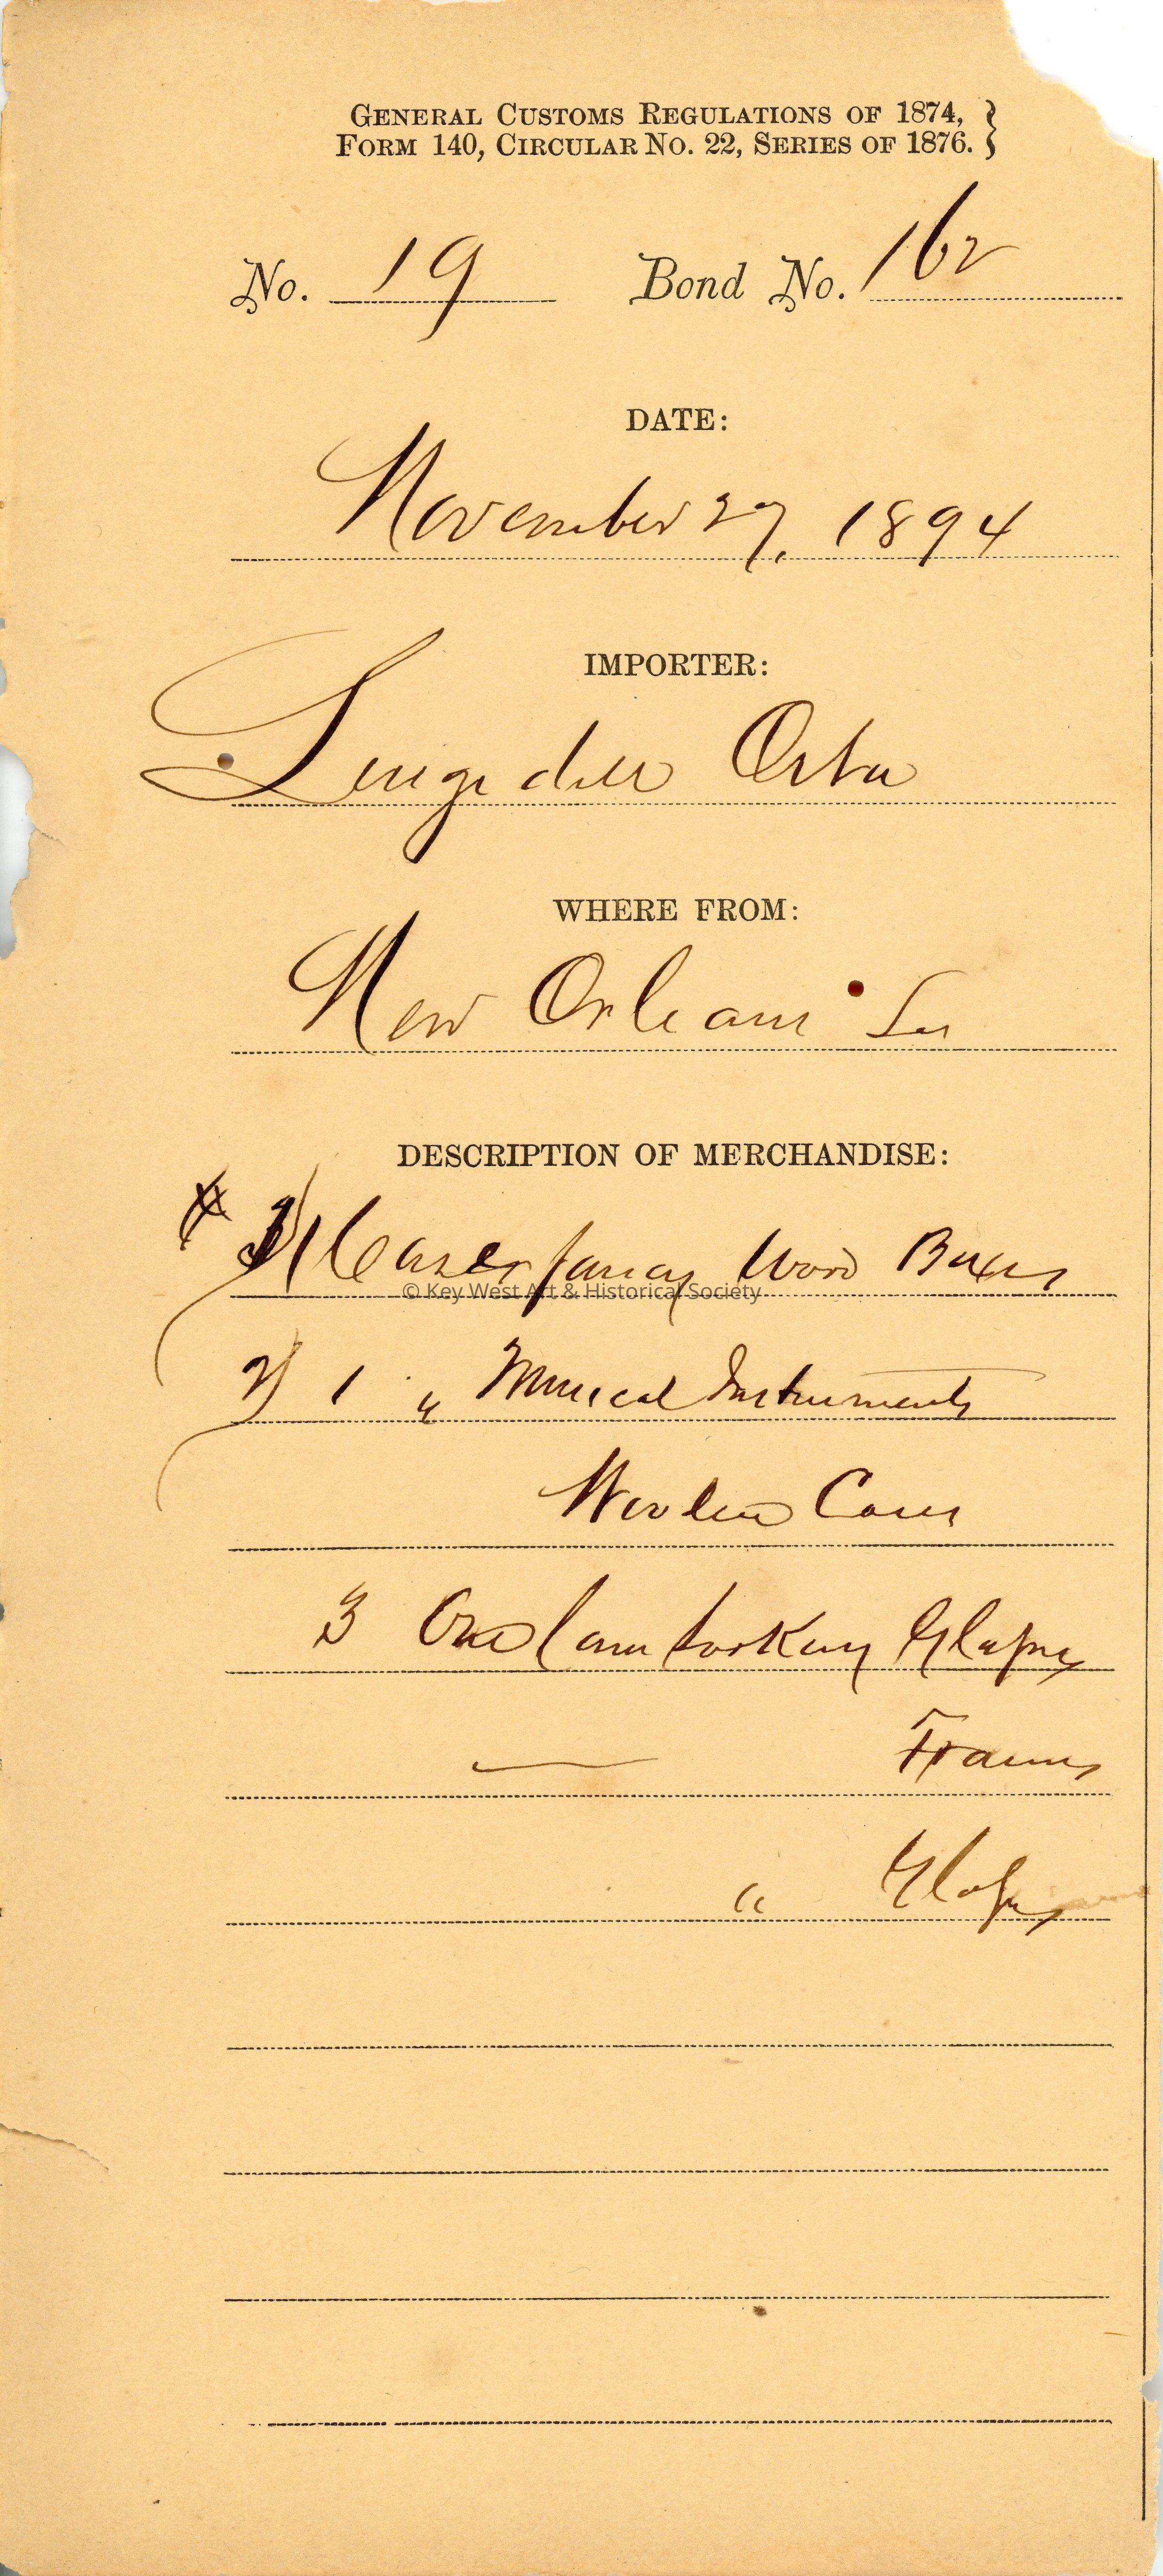 GENERAL CUSTOMS REGULATIONS OF 1874,
FORM 140, CIRCULAR NO. 22, SERIES OF 1876.
No. 19 Bond No. 162
DATE:
November 27, 1894
IMPORTER:
Luigi dell Orto
WHERE FROM:
New Orleans La
DESCRIPTION OF MERCHANDISE:
1 Cases fancy Wood Boxes
© Key West Art & Historical Society
2) 1 " Musical Instruments
Woolen Cases
3 One Case Looking Glasses
Frames
" Glasses